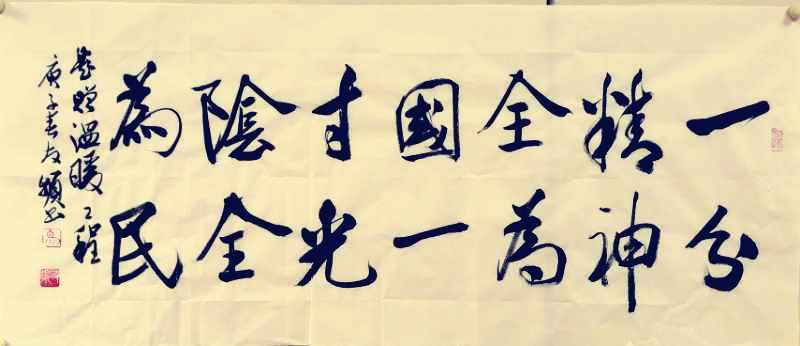 一分
精神
全為
國一
寸光
陰全
為民
贈温暖工程
庚子春